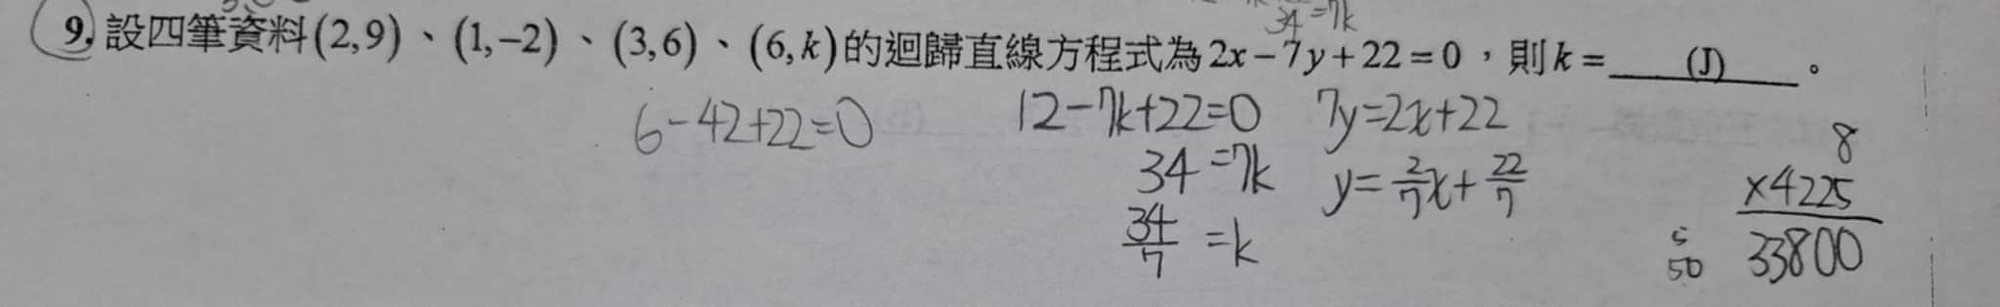 34=7k
9. 設四筆資料(2,9)、(1,−2)、(3,6)、(6,k)的迴歸直線方程式為2x−7y+22=0，則k=____(J)____。
6−42+22=0
12−7k+22=0
34=7k
34/7=k
7y=2x+22
y=2/7x+22/7
8
×4225
33800
5
50